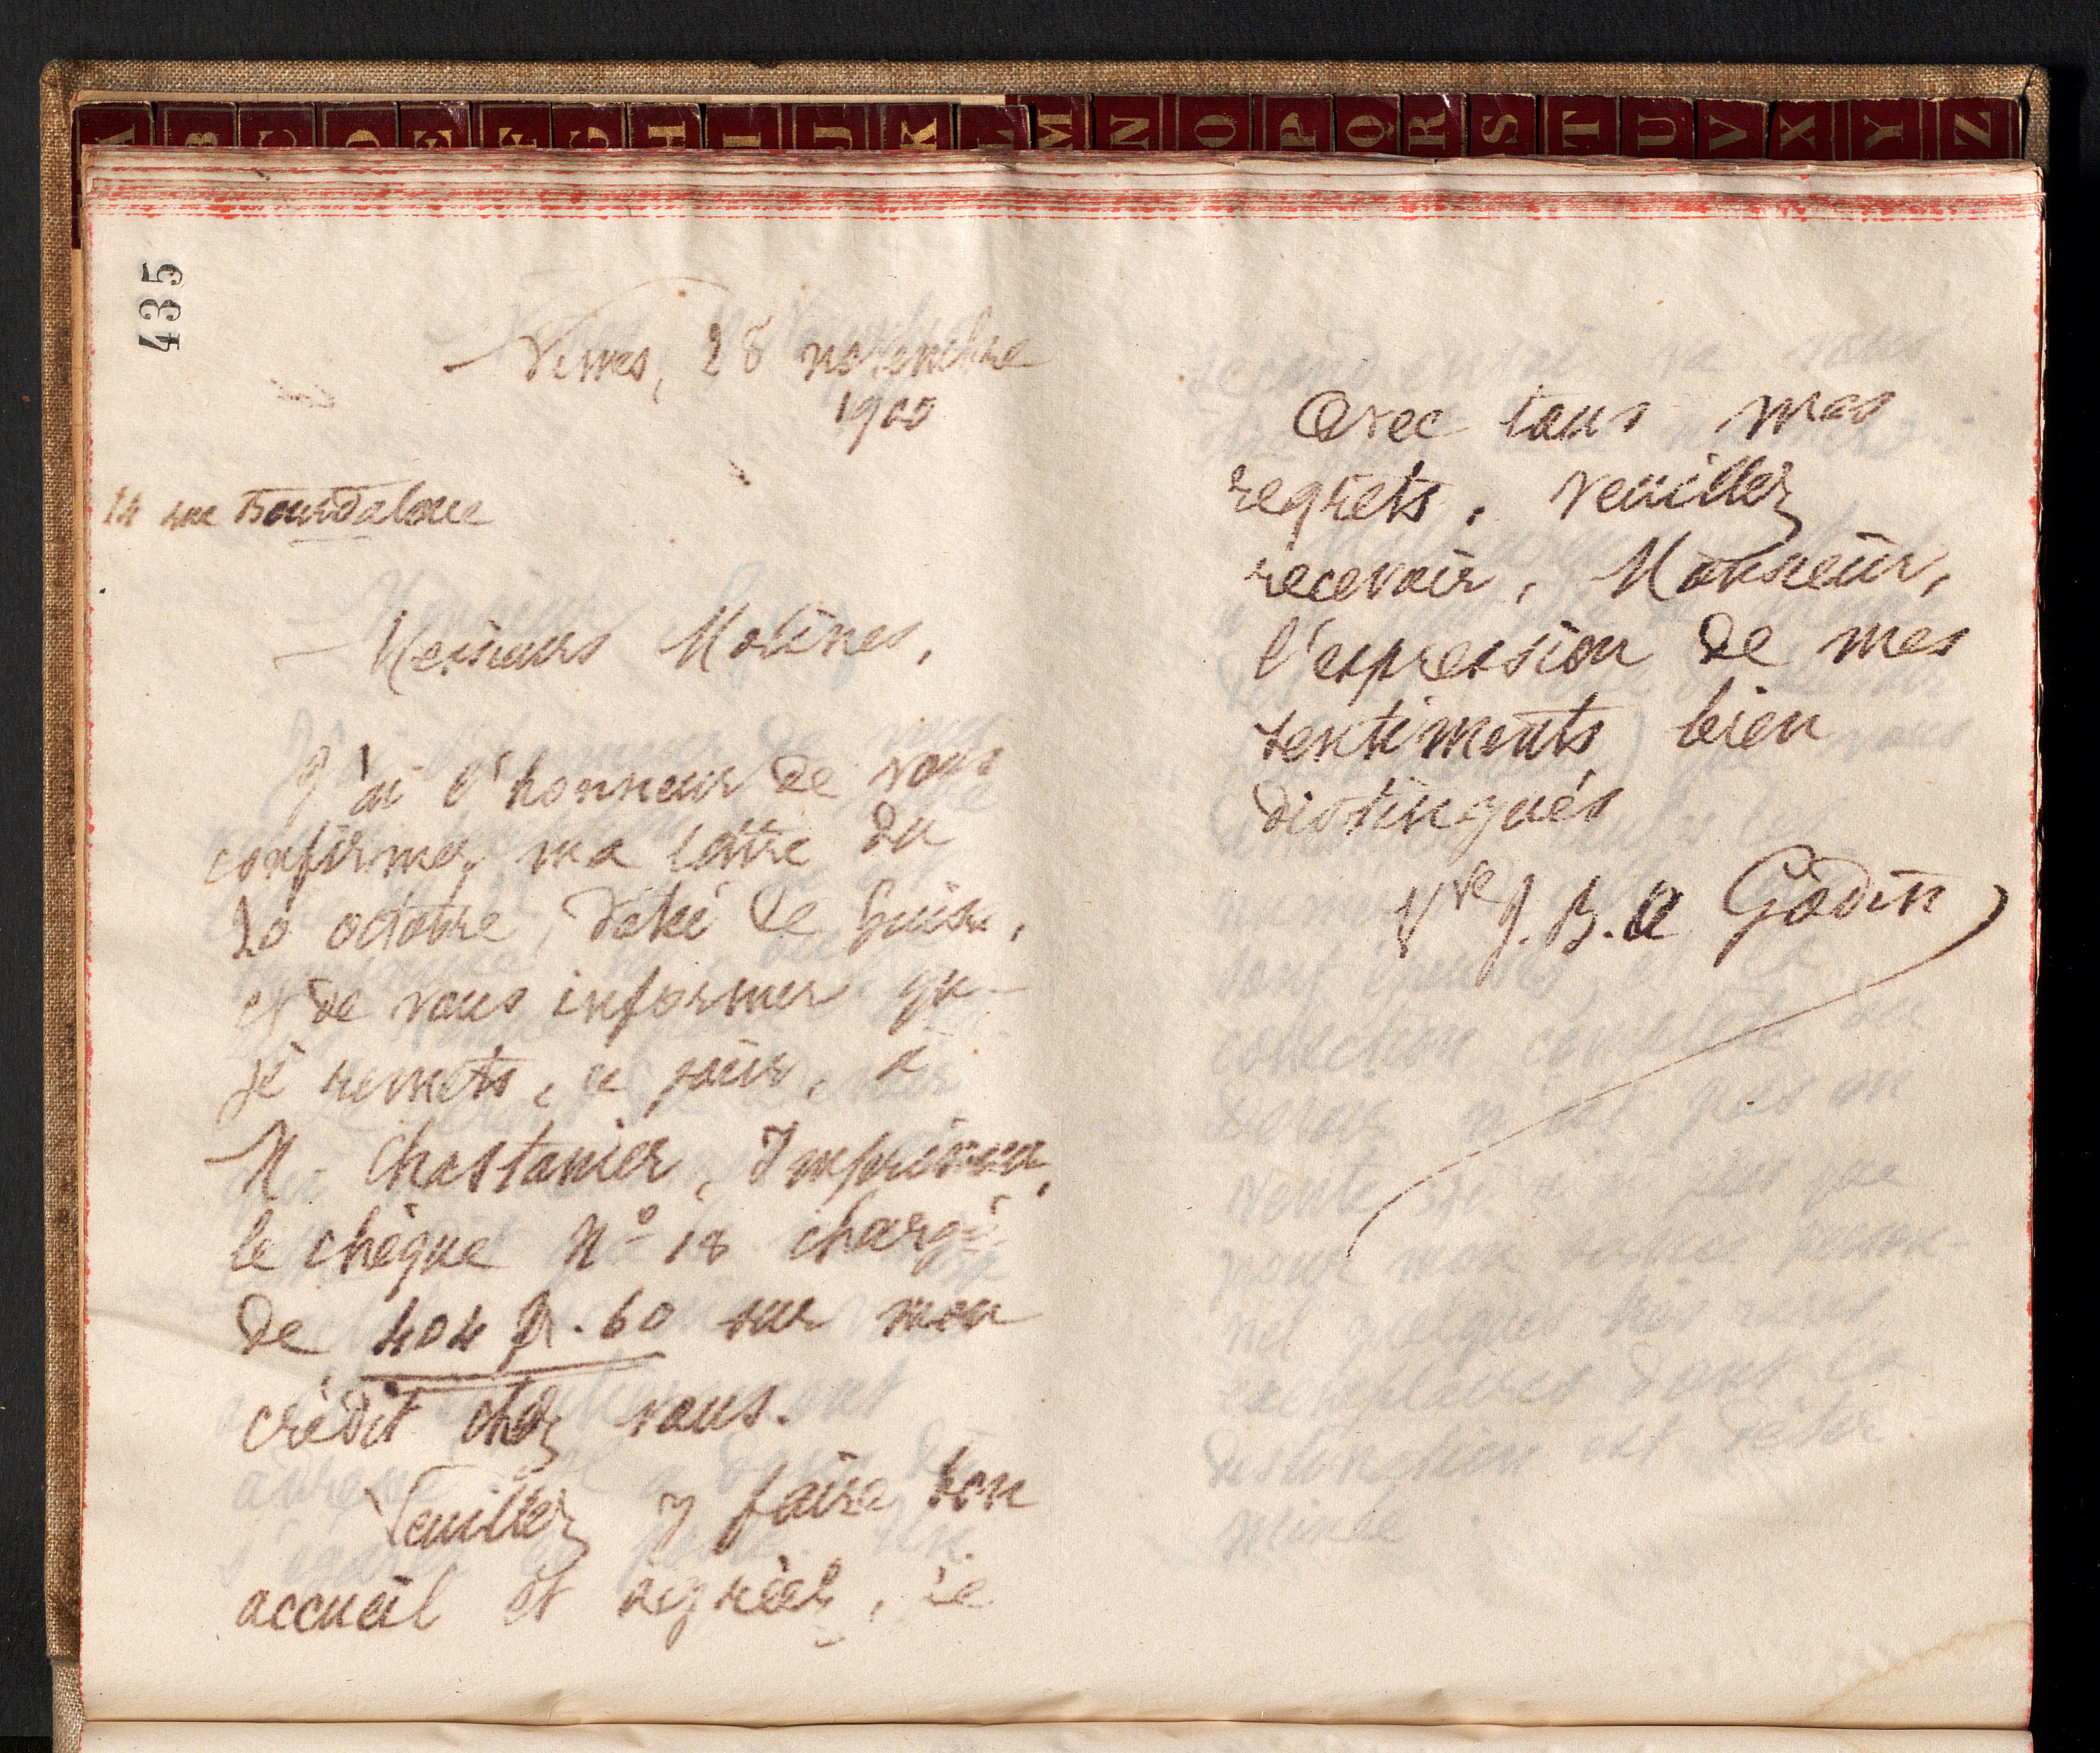 A B C D E F G H I J K L M N O P Q R S T U V X Y Z
435
Nîmes, 28 novembre
1900
14 rue Bourdaloue
Messieurs Molines,
J'ai l'honneur de vous
confirmer ma lettre du
20 octobre, daté de Guise,
et de vous informer que
je remets, ce jour, à
M. Chastanier, Imprimeur,
le chèque N° 18 chargé
de 404 fr. 60 sur mon
crédit chez vous.
Veuillez y faire bon
accueil et agréer, je
Avec tous mes
regrets, veuillez
recevoir, Monsieur,
l'expression de mes
sentiments bien
distingués
Vve J. B. A Godin